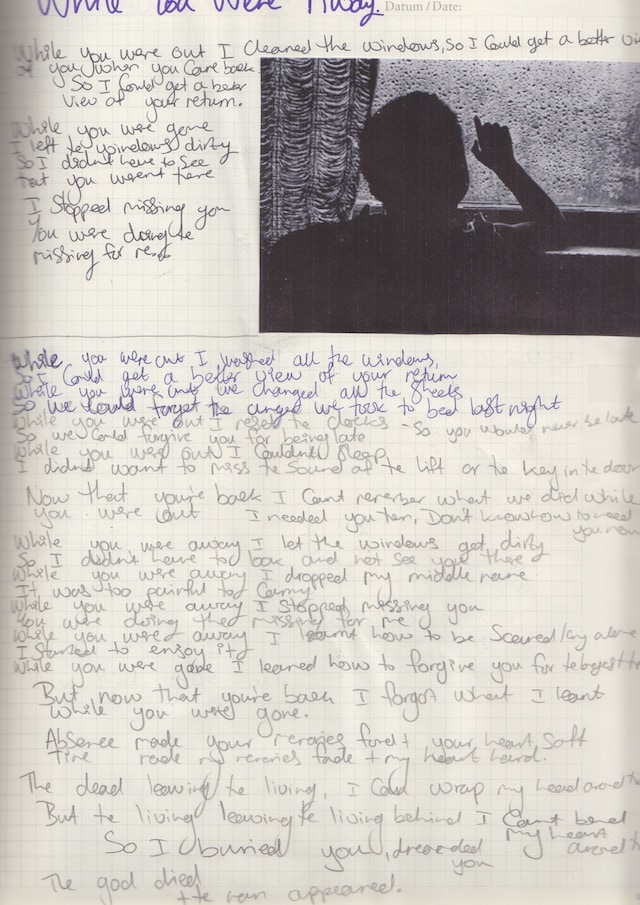 While You Were Away.
Datum / Date:
While you were out I Cleaned the windows, so I Could get a better
you when you Came back
So I Could get a better
view of your return.
While you were gone
I left te windows dirty
So I didn't have to see
that you weren't there
I Stopped missing you
You were doing te
missing for me.
While you were out I washed all the windows,
So I Could get a better view of your return
While you were out we changed all the sheets
So we Could forget the anger we took to bed last night
While you were out I reset te clocks - So you would never be late
So we Could forgive you for being late
While you were out I Couldn't Sleep
I didn't want to miss te Sound of te lift or te key in te door
Now that you're back I Can't remember what we did while
you were out I needed you ten, Don't know how to need
you now
While you were away I let the windows get dirty
So I didn't have to look and not see you there
While you were away I dropped my middle name
It was too painful to Carry
While you were away I Stopped missing you
You were doing the missing for me
While you were away I learnt how to be Scared/ alone
I Started to enjoy it
While you were gone I learned how to forgive you for
But now that you're back I forgot what I learnt
While you were gone.
Absence made your memories fond + your heart Soft
Time made my memories fade + my heart hard.
The dead leaving te living, I Can wrap my head around
But te living leaving te living behind I Can't bend
my heart
around
So I buried you, dreaded
you
The god died
+ te man appeared.